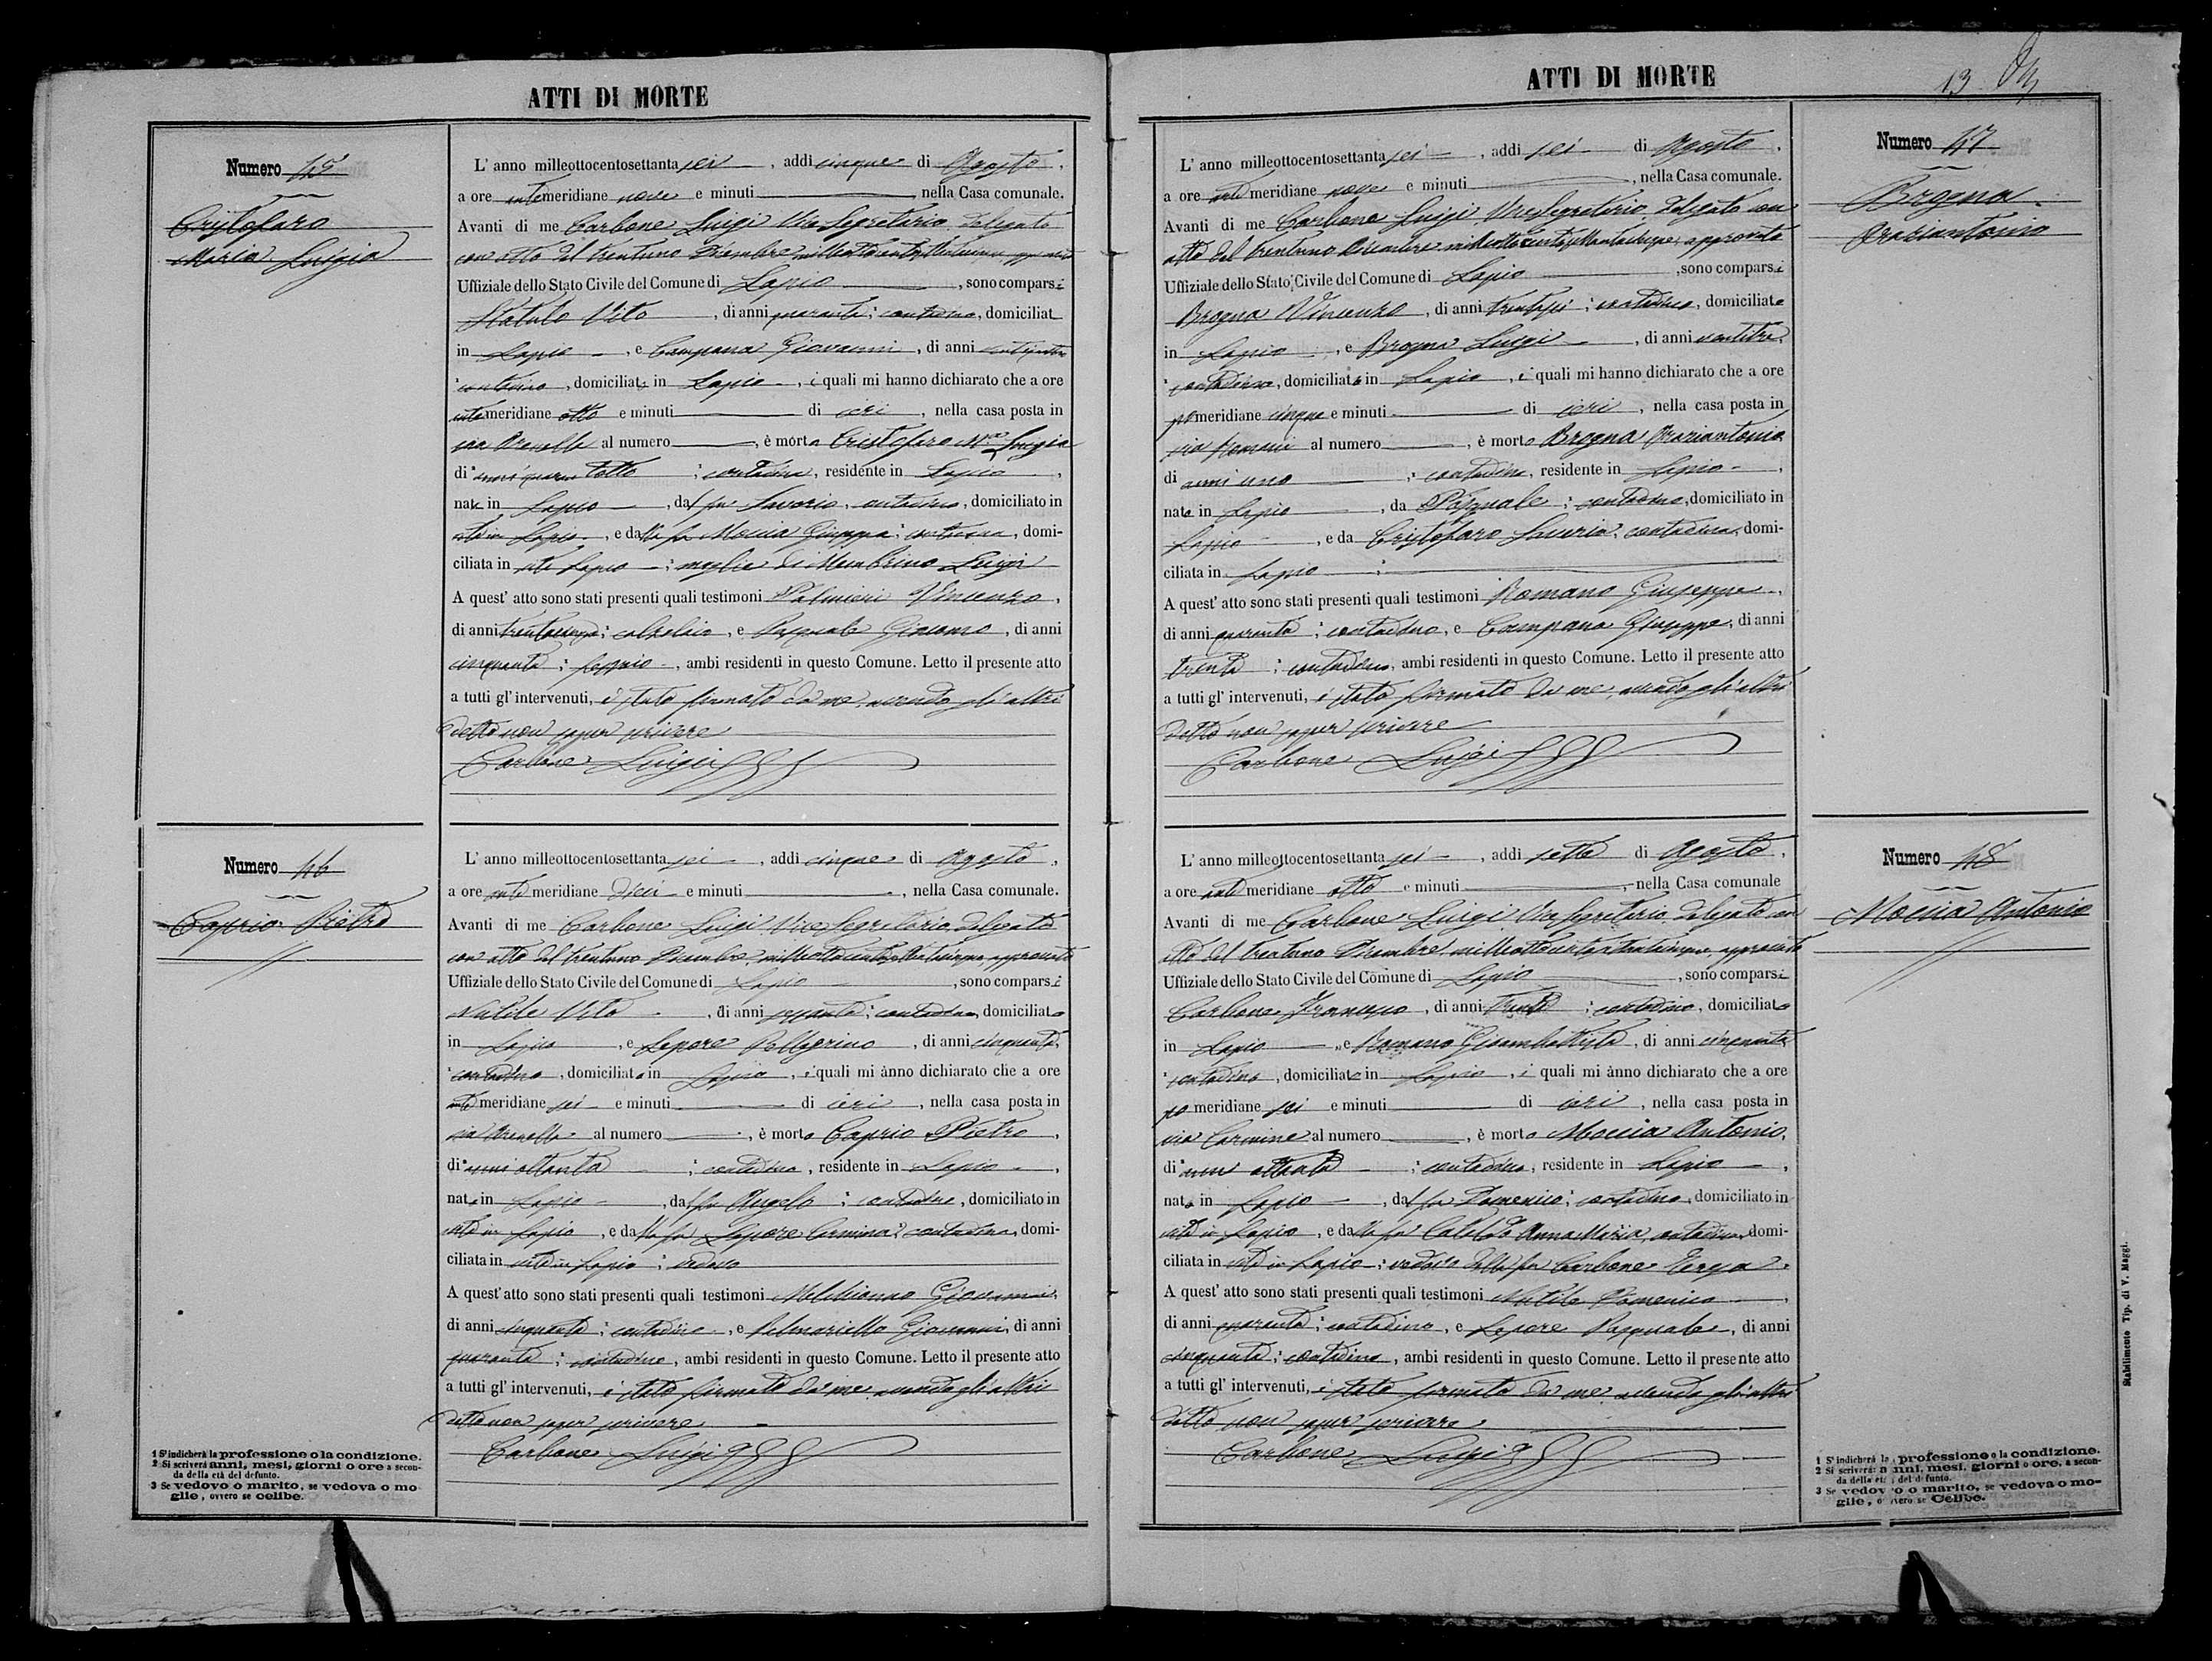 ATTI DI MORTE
Numero 45
Cristofaro
Maria Luigia
L' anno milleottocentosettanta sei, addì cinque di Agosto,
a ore antimeridiane nove e minuti, nella Casa comunale.
Avanti di me Carbone Luigi Vice Segretario delegato
con atto del trentuno Dicembre milleottocentosettantacinque approvato
Uffiziale dello Stato Civile del Comune di Lapio, sono comparsi
Statuto Vito, di anni quaranta; contadino, domiciliat
in Lapio, e Campana Giovanni, di anni
contadino, domiciliato in Lapio, i quali mi hanno dichiarato che a ore
antimeridiane otto e minuti di ieri, nella casa posta in
via Arenella al numero, è morta Cristofaro M.a Luigia
di anni quarantotto; contadina, residente in Lapio,
nata in Lapio, dal fu Saverio, contadino, domiciliato in
vita in Lapio, e dalla fu Moccia Giuseppa; contadina, domi-
ciliata in vita Lapio; moglie di Membrino Luigi
A quest' atto sono stati presenti quali testimoni Palmieri Vincenzo,
di anni trentacinque; calzolaio, e Pasquale Giacomo, di anni
cinquanta;, ambi residenti in questo Comune. Letto il presente atto
a tutti gl' intervenuti, è stato firmato da me, avendo gli altri
detto non saper scrivere
Carbone Luigi
Numero 46
Caprio Pietro
L' anno milleottocentosettanta sei, addì cinque di Agosto,
a ore antimeridiane dieci e minuti, nella Casa comunale.
Avanti di me Carbone Luigi Vice Segretario delegato
con atto del trentuno Dicembre milleottocentosettantacinque approvato
Uffiziale dello Stato Civile del Comune di Lapio, sono comparsi
Nutile Vito, di anni sessanta; contadino, domiciliato
in Lapio, e Lepore Pellegrino, di anni cinquanta,
contadino, domiciliato in Lapio, i quali mi ànno dichiarato che a ore
antimeridiane sei e minuti di ieri, nella casa posta in
via Arenella al numero, è morto Caprio Pietro,
di anni ottanta; contadino, residente in Lapio,
nato in Lapio, dal fu Angelo; contadino, domiciliato in
vita in Lapio, e dalla fu Lepore Carmina; contadina, domi-
ciliata in vita in Lapio; vedovo
A quest' atto sono stati presenti quali testimoni Melchionno Giovanni,
di anni cinquanta; contadino, e Palmariello Giovanni, di anni
quaranta; contadino, ambi residenti in questo Comune. Letto il presente atto
a tutti gl' intervenuti, è stato firmato da me avendo gli altri
detto non saper scrivere
Carbone Luigi
1 S' indicherà la professione o la condizione.
2 Si scriverà anni, mesi, giorni o ore a secon-
da della età del defunto.
3 Se vedovo o marito, se vedova o mo
glie, ovvero se celibe.
ATTI DI MORTE
13
Numero 47
Brogna
Oraziantonio
L' anno milleottocentosettanta sei, addì sei di Agosto,
a ore antimeridiane nove e minuti, nella Casa comunale.
Avanti di me Carbone Luigi Vice Segretario delegato con
atto del trentuno Dicembre milleottocentosettantacinque, approvato
Uffiziale dello Stato Civile del Comune di Lapio, sono comparsi
Brogna Vincenzo, di anni trentasei; contadino, domiciliato
in Lapio, e Brogna Luigi, di anni ventitre
contadino, domiciliato in Lapio, i quali mi hanno dichiarato che a ore
pomeridiane cinque e minuti di ieri, nella casa posta in
via Romani al numero, è morto Brogna Oraziantonio
di anni uno; contadino, residente in Lapio,
nato in Lapio, da Pasquale; contadino, domiciliato in
Lapio, e da Cristofaro Saveria; contadina, domi-
ciliata in Lapio;
A quest' atto sono stati presenti quali testimoni Romano Giuseppe,
di anni quaranta; contadino, e Campana Giuseppe, di anni
trenta; contadino, ambi residenti in questo Comune. Letto il presente atto
a tutti gl' intervenuti, è stato firmato da me, avendo gli altri
detto non saper scrivere
Carbone Luigi
Numero 48
Moccia Antonio
L' anno milleottocentosettanta sei, addì sette di Agosto,
a ore antimeridiane otto e minuti, nella Casa comunale
Avanti di me Carbone Luigi Vice Segretario delegato con
atto del trentuno Dicembre milleottocentosettantacinque, approvato
Uffiziale dello Stato Civile del Comune di Lapio, sono comparsi
Carbone Francesco, di anni trenta; contadino, domiciliato
in Lapio, e Romano Giambattista, di anni cinquanta
contadino, domiciliato in Lapio, i quali mi ànno dichiarato che a ore
pomeridiane sei e minuti di ieri, nella casa posta in
via Carmine al numero, è morto Moccia Antonio,
di anni ottanta; contadino, residente in Lapio,
nato in Lapio, dal fu Domenico; contadino, domiciliato in
vita in Lapio, e dalla fu Cataldo Anna Maria, contadina, domi-
ciliata in vita in Lapio; vedovo della fu Carbone
A quest' atto sono stati presenti quali testimoni Nutile Domenico,
di anni quaranta; contadino, e Lepore Pasquale, di anni
cinquanta; contadino, ambi residenti in questo Comune. Letto il presente atto
a tutti gl' intervenuti, è stato firmato da me avendo gli altri
detto non saper scrivere
Carbone Luigi
1 S' indicherà la professione o la condizione.
2 Si scriverà: anni, mesi, giorni o ore, a secon-
da della età del defunto.
3 Se vedovo o marito, se vedova o mo-
glie, ovvero se Celibe.
Stabilimento Tip. di V. Maggi.